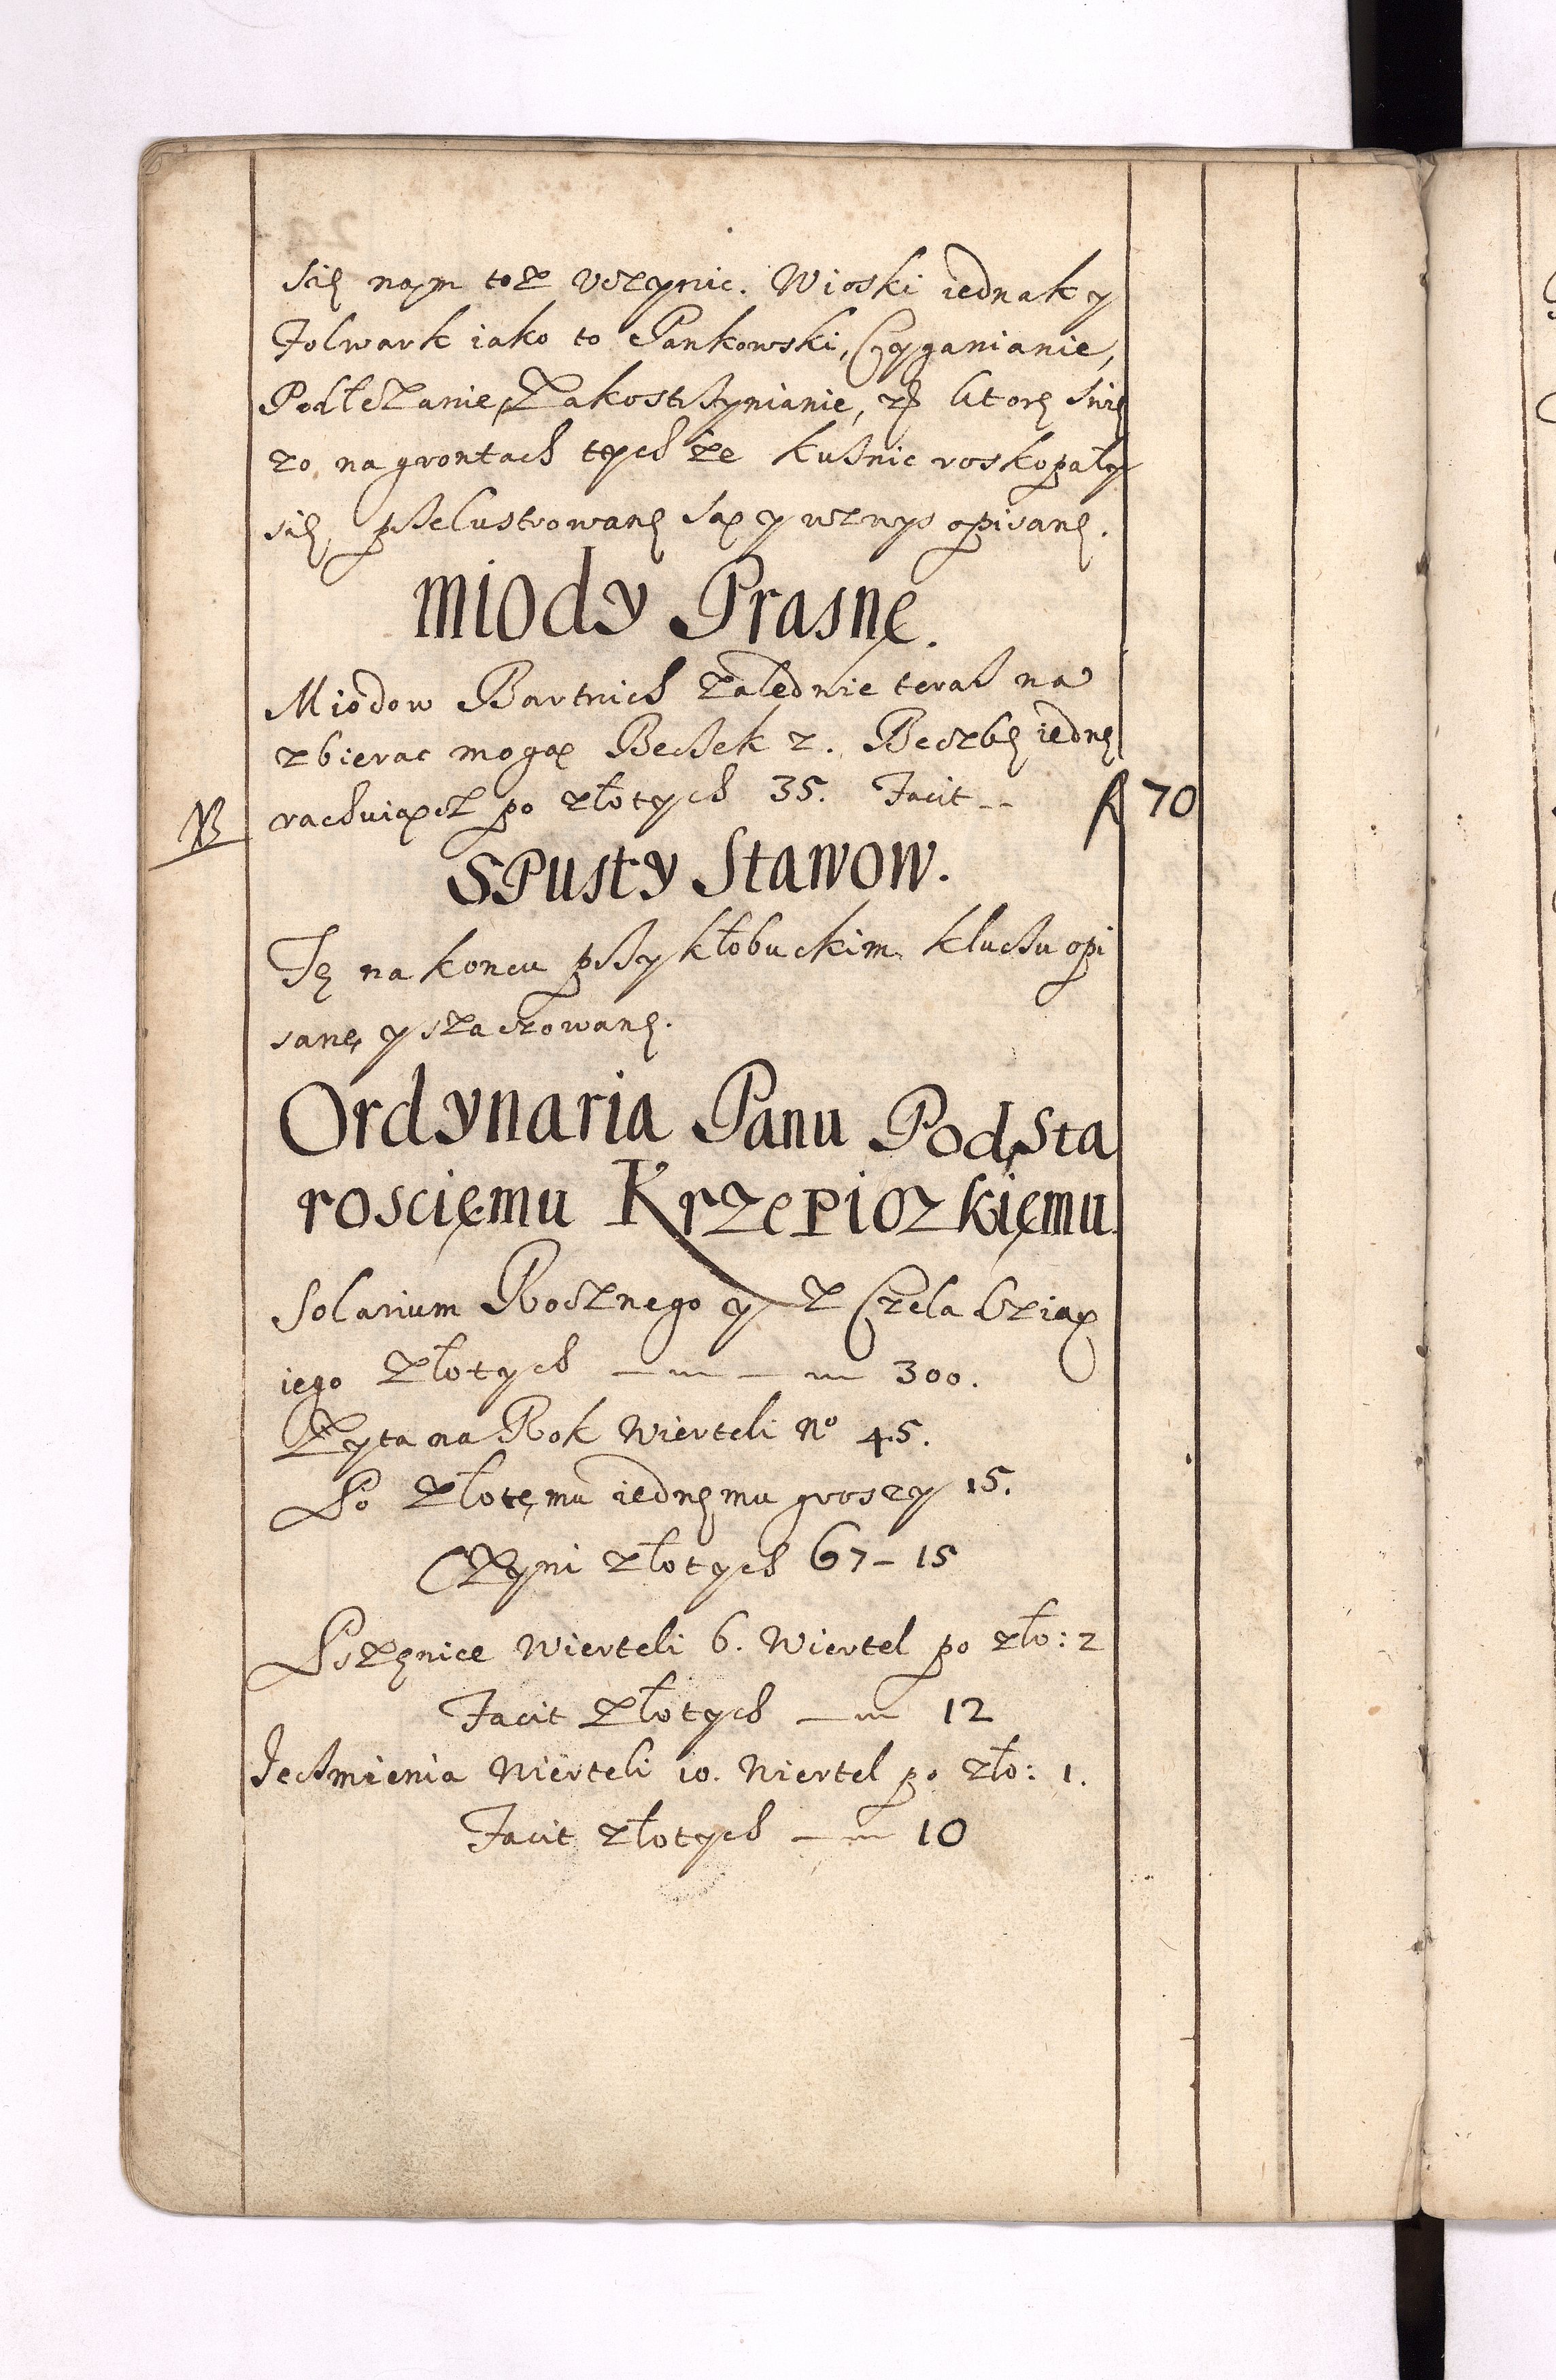 się nąm toż vczynic. Wioski iednak y
Folwark iako to Pankowski, Cyganianie,
Podłężanie, Zakostrzynianie, ktorę swię
zo na grontach tych ze kuźnic roskopały
się, przelustrowanę są y wzwyż opisanę.
Miody Prasnę.
Miodow Bartnich zalednie teraz na
zbierac mogą Beczek 2. Beczkę iednę
NB rachuiącz po złotych 35. Facit -- fl 70
SPusty Stawow.
Tę na koncu przy kłobuckim kluczu opi
sanę y szaczowanę.
Ordynaria Panu Podsta
rosciemu Krzepiczkiemu
Solarium Rocznego y z Czeladzią
iego złotych — — 300.
Zyta na Rok Wierteli No 45.
Po złotemu iednemu groszy 15.
Czyni złotych 67 – 15
Pszenice Wierteli 6. Wiertel po zło: 2
Facit złotych — 12
Jeczmienia Wierteli 10. Wiertel po zło: 1.
Facit złotych — 10